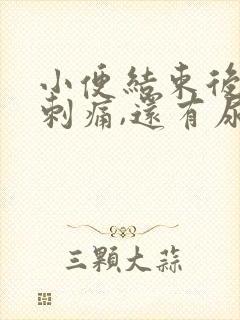 小便結束後
刺痛,還有尿
三顆大蒜